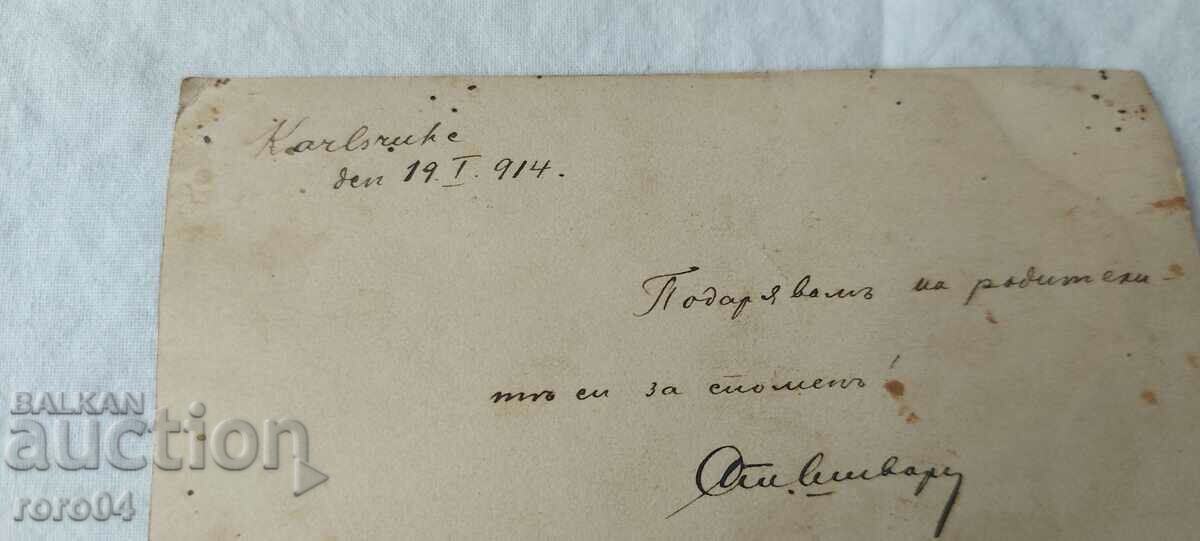 Karlsruhe
ден 19. I. 914.
Подарявамъ на родители-
тѣ си за споменъ!
BALKAN
auction
roro04